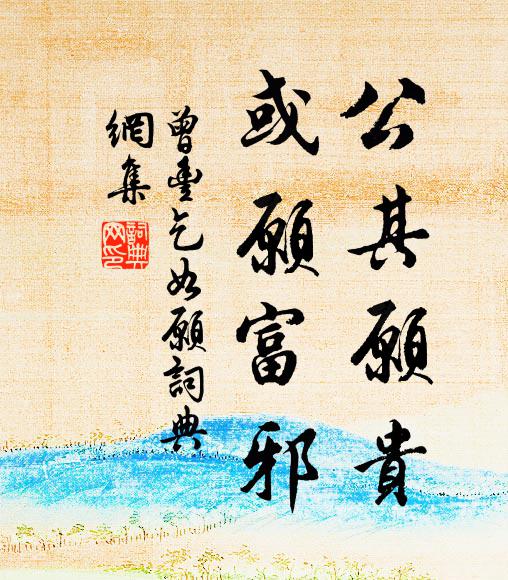 公其願貴
或願富邪
曾豐乞如願詞典
網集
詞典
网印